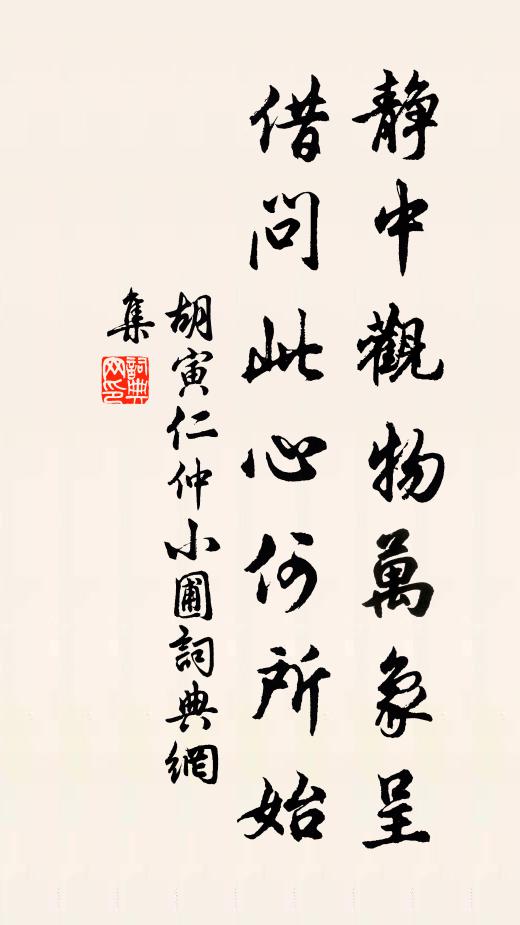 靜中觀物萬象呈
借問此心何所始
胡寅仁仲小圃詞典網
集
詞典網印